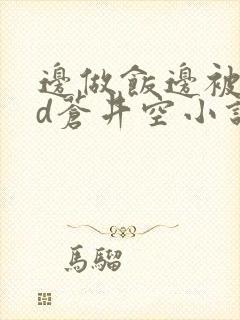 邊做飯邊被
d蒼井空小說
馬騮